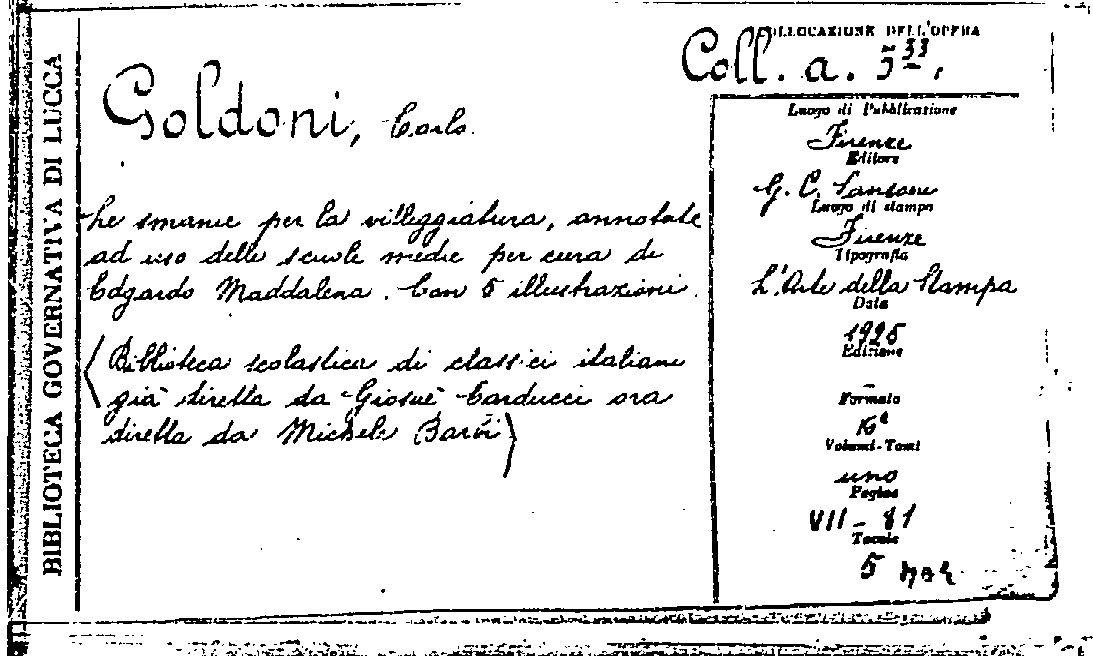 BIBLIOTECA GOVERNATIVA DI LUCCA
COLLOCAZIONE DELL'OPERA
Coll. a. 5 33.
Goldoni, Carlo.
Le smanie per la villeggiatura, annotate
ad uso delle scuole medie per cura di
Edgardo Maddalena. Con 5 illustrazioni.
(Biblioteca scolastica di classici italiani
già diretta da Giosuè Carducci ora
diretta da Michele Barbi)
Luogo di Pubblicazione
Firenze
Editore
G. C. Sansoni
Luogo di stampa
Firenze
Tipografia
L'Arte della Stampa
Data
1925
Edizione
–
Formato
16°
Volumi-Tomi
uno
Pagine
VII – 81
Tavole
5